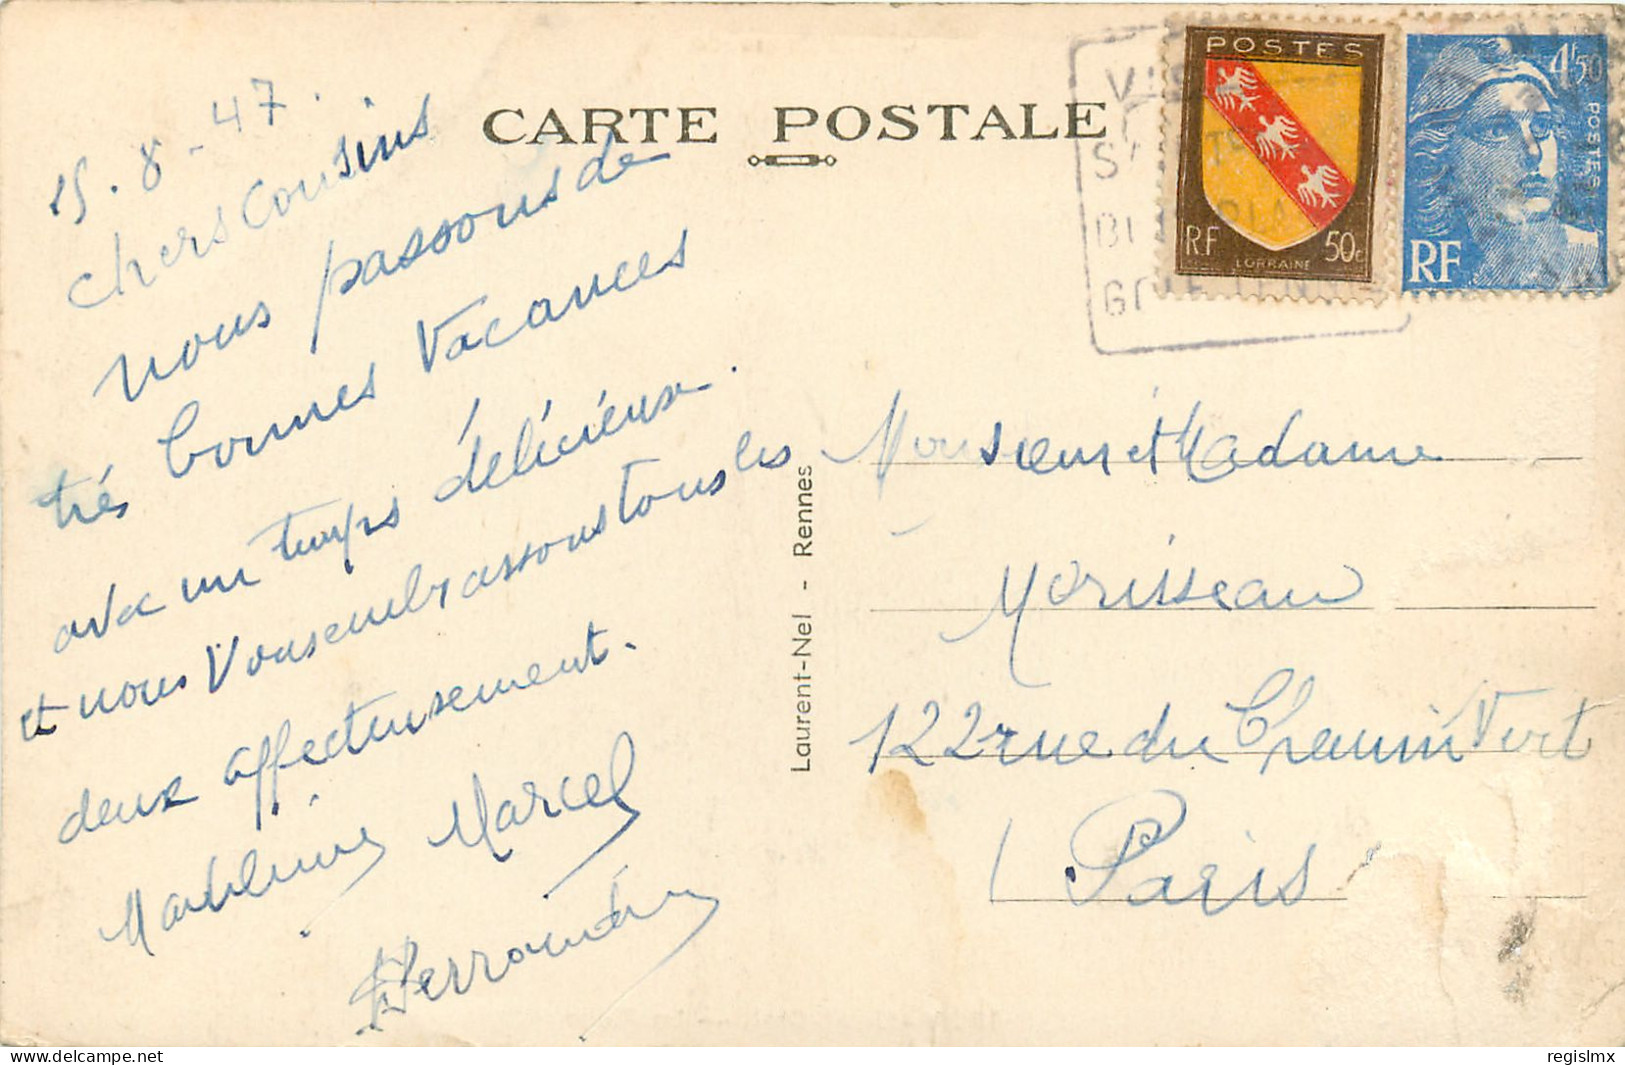 CARTE POSTALE
15.8-47.
chers cousins
nous passons de
très bonnes Vacances
avec un temps délicieux.
et nous Vous embrassons tous les
deux affectueusement.
Madeleine Marcel
Laurent-Nel - Rennes
POSTES
RF 50c
LORRAINE
4f50
POSTES
RF
Monsieur et Madame
Morisseau
122 rue du Chemin Vert
Paris
delcampe.net
regislmx